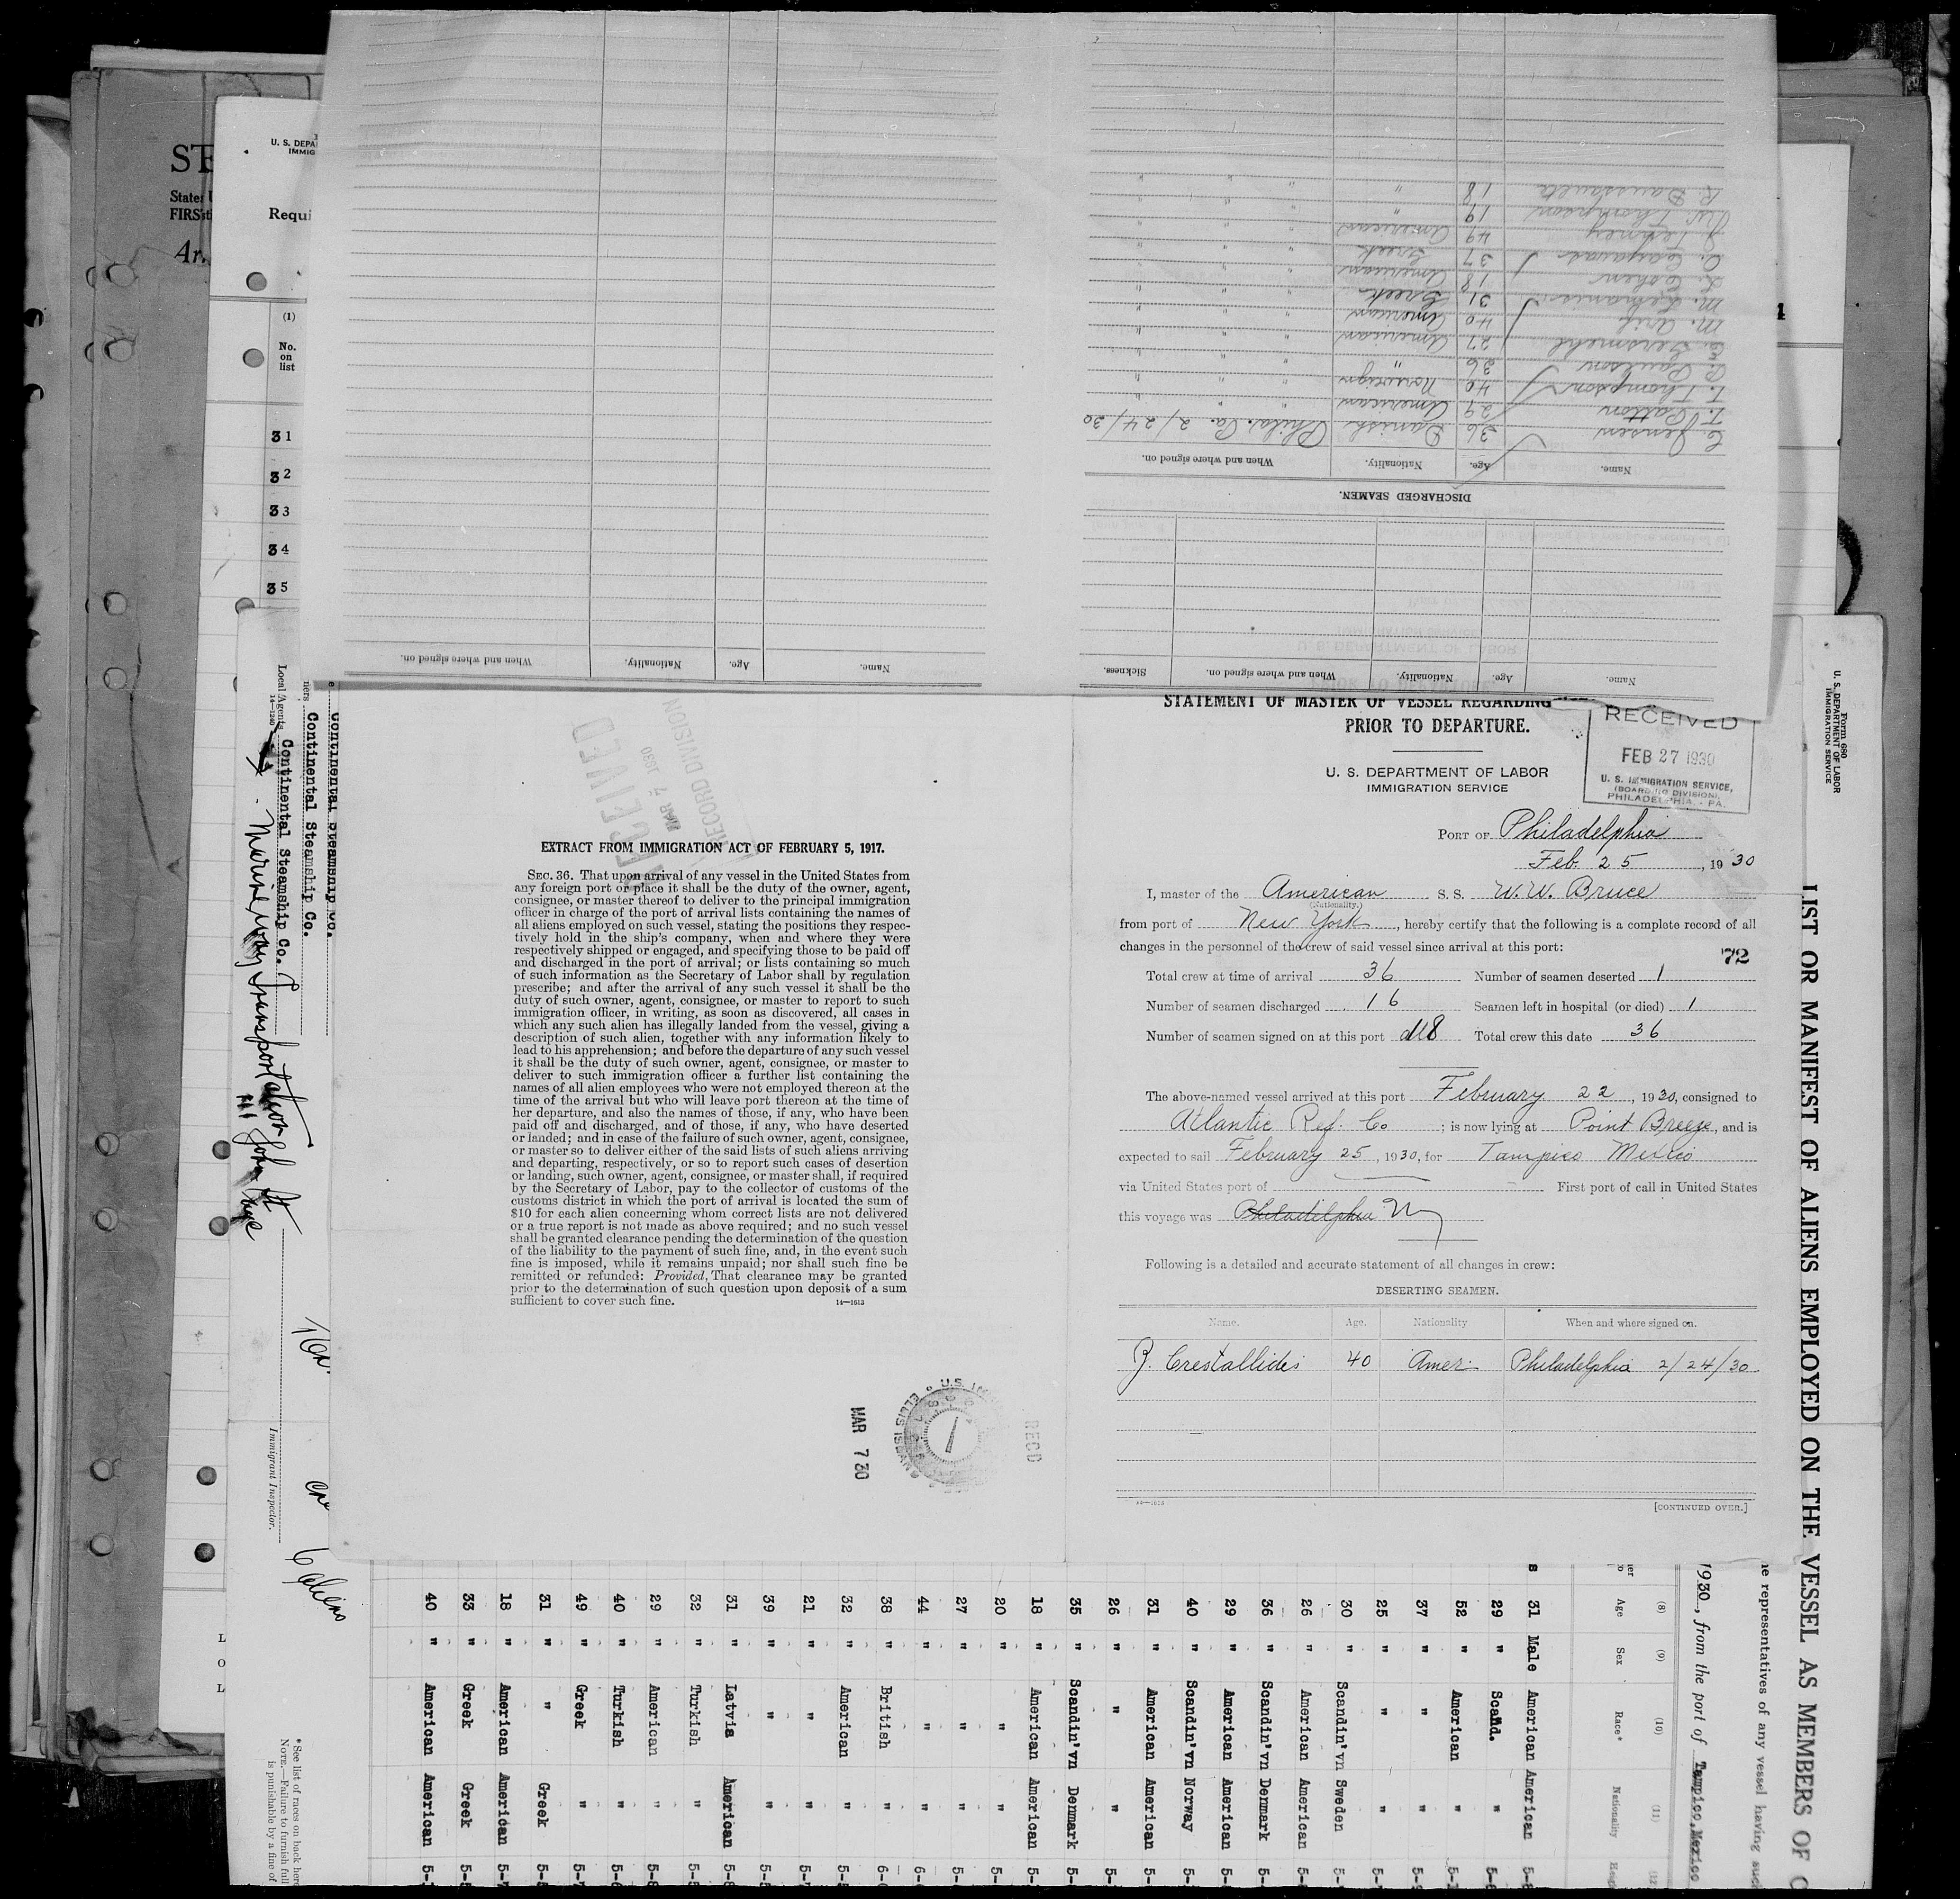 STATEMENT OF MASTER OF VESSEL REGARDING
PRIOR TO DEPARTURE.
U. S. DEPARTMENT OF LABOR
IMMIGRATION SERVICE
RECEIVED
FEB 27 1930
U. S. IMMIGRATION SERVICE,
(BOARDING DIVISION),
PHILADELPHIA, - PA.
PORT OF Philadelphia
Feb. 25, 1930
I, master of the American S. S. W. W. Bruce
(Nationality.)
from port of New York, hereby certify that the following is a complete record of all
changes in the personnel of the crew of said vessel since arrival at this port:
72
Total crew at time of arrival 36 Number of seamen deserted 1
Number of seamen discharged 16 Seamen left in hospital (or died) 1
Number of seamen signed on at this port Total crew this date 36
The above-named vessel arrived at this port February 22, 1930, consigned to
Atlantic Ref. Co; is now lying at Point Breeze, and is
expected to sail February 25, 1930, for Tampico Mexico
via United States port of First port of call in United States
this voyage was Philadelphia
Following is a detailed and accurate statement of all changes in crew:
DESERTING SEAMEN.
Name. Age. Nationality When and where signed on.
Crestallidis 40 Amer. Philadelphia 2/24/30
[CONTINUED OVER.]
EXTRACT FROM IMMIGRATION ACT OF FEBRUARY 5, 1917.
SEC. 36. That upon arrival of any vessel in the United States from
any foreign port or place it shall be the duty of the owner, agent,
consignee, or master thereof to deliver to the principal immigration
officer in charge of the port of arrival lists containing the names of
all aliens employed on such vessel, stating the positions they respec-
tively hold in the ship's company, when and where they were
respectively shipped or engaged, and specifying those to be paid off
and discharged in the port of arrival; or lists containing so much
of such information as the Secretary of Labor shall by regulation
prescribe; and after the arrival of any such vessel it shall be the
duty of such owner, agent, consignee, or master to report to such
immigration officer, in writing, as soon as discovered, all cases in
which any such alien has illegally landed from the vessel, giving a
description of such alien, together with any information likely to
lead to his apprehension; and before the departure of any such vessel
it shall be the duty of such owner, agent, consignee, or master to
deliver to such immigration officer a further list containing the
names of all alien employees who were not employed thereon at the
time of the arrival but who will leave port thereon at the time of
her departure, and also the names of those, if any, who have been
paid off and discharged, and of those, if any, who have deserted
or landed; and in case of the failure of such owner, agent, consignee,
or master so to deliver either of the said lists of such aliens arriving
and departing, respectively, or so to report such cases of desertion
or landing, such owner, agent, consignee, or master shall, if required
by the Secretary of Labor, pay to the collector of customs of the
customs district in which the port of arrival is located the sum of
$10 for each alien concerning whom correct lists are not delivered
or a true report is not made as above required; and no such vessel
shall be granted clearance pending the determination of the question
of the liability to the payment of such fine, and, in the event such
fine is imposed, while it remains unpaid; nor shall such fine be
remitted or refunded: Provided, That clearance may be granted
prior to the determination of such question upon deposit of a sum
sufficient to cover such fine.
14—1613
RECEIVED
MAR 7 1930
RECORD DIVISION
MAR 7 30
RECD
Name. Age. Nationality. When and where signed on. Sickness.
DISCHARGED SEAMEN.
Name. Age. Nationality. When and where signed on.
C. Jensen 36 Danish Phila. Pa. 2/24/30
T. Patton 29 American " "
T. Thompson 40 Norwegn " "
Paulson 36 " " "
27 American " "
M. Arif 40 American " "
M. 31 Greek " "
Cohen 18 American " "
37 Greek " "
49 American " "
Thompson 19 " " "
R. 18 " " "
Name. Age. Nationality. When and where signed on.
U. S. DEPA
IMMIG
Requi
(1)
No.
on
list
31
32
33
34
35
Form 680
U. S. DEPARTMENT OF LABOR
IMMIGRATION SERVICE
LIST OR MANIFEST OF ALIENS EMPLOYED ON THE VESSEL AS MEMBERS OF C
representatives of any vessel having such
1930, from the port of Tampico, Mexico
(8) (9) (10) (11) (12)
Age Sex Race* Nationality
31 Male American American
29 " Scand. "
52 " American "
37 " " "
25 " " "
30 " Scandin'vn Sweden
26 " American American
36 " Scandin'vn Denmark
29 " American American
40 " Scandin'vn Norway
31 " American American
26 " " "
35 " Scandin'vn Denmark
18 " American American
20 " " "
27 " " "
44 " " "
38 " British "
32 " American "
21 " " "
39 " " "
31 " Latvia American
32 " Turkish "
29 " American "
40 " Turkish "
49 " Greek "
31 " " Greek
18 " American American
33 " Greek Greek
40 " American American
Continental Steamship Co.
Continental Steamship Co.
Local Agents Continental Steamship Co.
14—1240
Transportation
Immigrant Inspector.
6 aliens
* See list of races on back here
NOTE.—Failure to furnish full
is punishable by a fine of